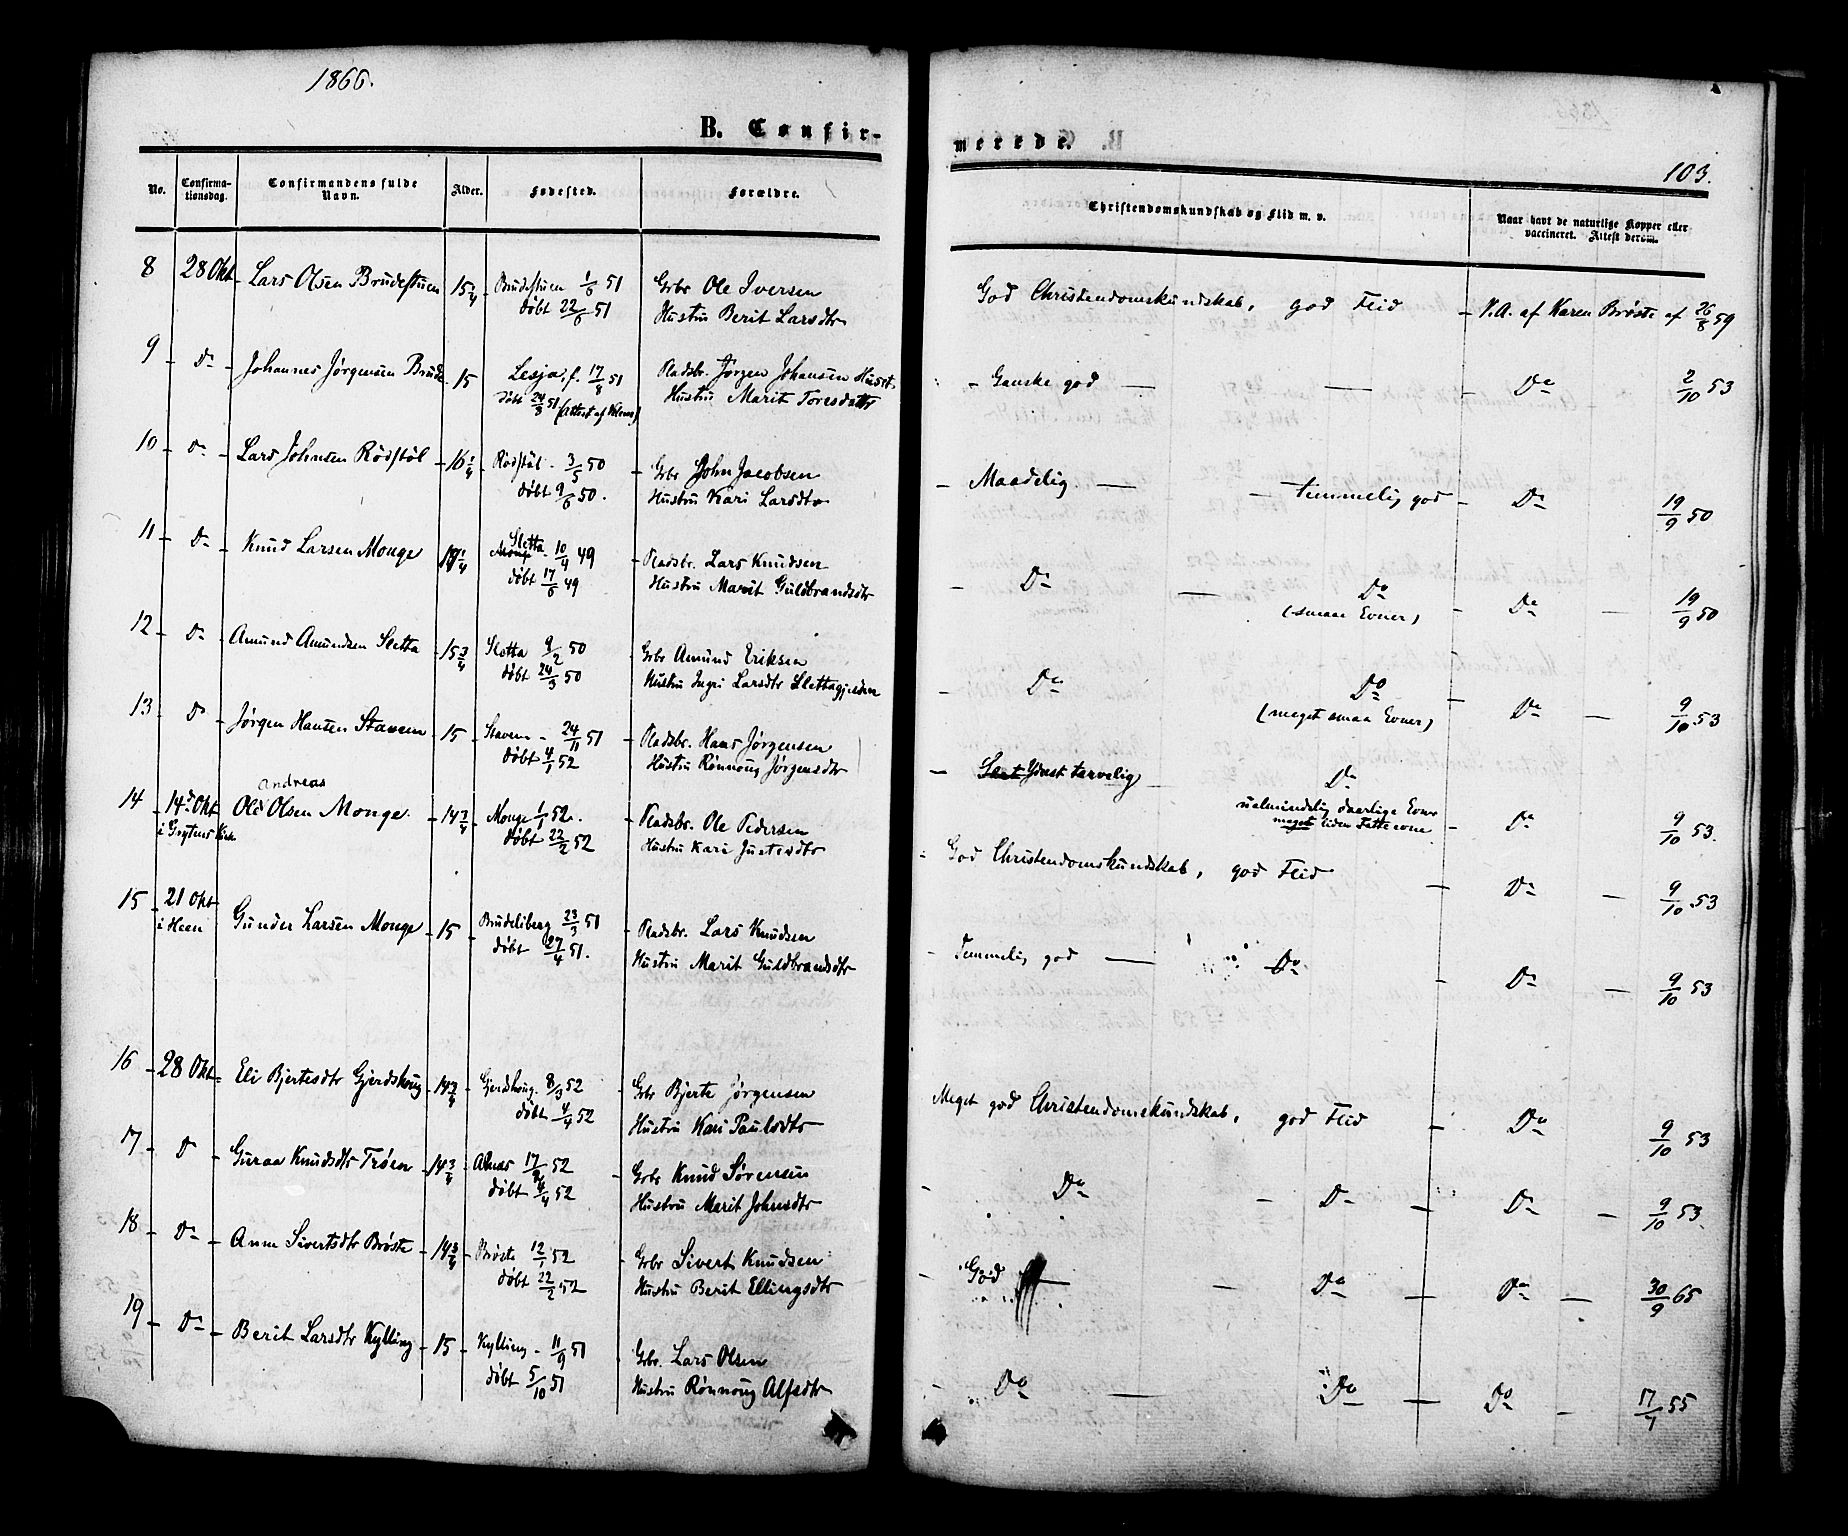 1866.
B. Confir-
merede.
103.
No. Confirmationsdag. Confirmandens fulde Navn. Alder. Fødested. Forældre. Christendomskundskab og Flid m. v. Naar havt de naturlige Kopper eller vaccineret. Attest derom.
8 28 Okt. Lars Olsen Brudestuen 15 1/4 Brudestuen 1/6 51 Gbr Ole Iversen
døbt 22/6 51 Hustru Berit Larsdtr
God Christendomskundskab, god Flid - V.A. af Karen Brøste af 26/8 59
9 - Do - Johannes Jørgensen Brude 15 Lesja, f. 17/8 51 Pladsbr. Jørgen Johansen
døbt 24/8 51 (Attest af) Hustru Marit Toresdatter
- Ganske god — — Do 2/10 53
10 - Do - Lars Johnsen Rødstøl 16 1/4 Rødstøl - 3/5 50 Gbr John Jacobsen
døbt 9/6 50. Hustru Kari Larsdtr
- Maadelig — temmelig god - Do 19/9 50
11 - Do - Knud Larsen Monge Sletta 10/4 49 Pladsbr. Lars Knudsen
døbt 17/6 49 Hustru Marit Guldbrandsdtr
- Do — Do - Do — 19/9 50
(smaa Evner)
12 - Do - Amund Amundsen Sletta 15 3/4 Sletta 9/2 50 Gbr Amund Eriksen
døbt 24/3 50 Hustru Ingri Larsdtr Slettagjerden
- Do Do - Do — 9/10 53
(meget smaa Evner)
13 - Do - Jørgen Hansen Stavem 15 Stavem - 24/11 51 - Pladsbr. Hans Jørgensen
døbt 4/1 52 Hustru Rønnoug Jørgensdtr
- Yderst tarvelig Do
ualmindelig daarlige Evner
meget liden Fatteevne - Do 9/10 53.
Andreas
14 - 14de Okt Ole Olsen Monge. 14 3/4 Monge 1/1 52. Pladsbr. Ole Pedersen
i Grytens Kirke døbt 22/2 52 Hustru Kari Justesdtr
- God Christendomskundskab, god Flid — Do — 9/10 53
15 - 21 Okt Gunder Larsen Monge - 15 Brudeliberg 23/3 51 Pladsbr. Lars Knudsen
i Heen døbt 27/4 51. Hustru Marit Guldbrandsdtr
- Temmelig god — Do - Do — 9/10 53
16 - 28 Okt Eli Bjertesdtr Gjerdshoug 14 3/4 Gjerdshoug. 8/3 52 Gbr Bjerte Jørgensen
døbt 4/4 52 Hustru Kari Paulsdtr
Meget god Christendomskundskab, god Flid - Do 9/10 53
17 - Do - Guraa Knudsdtr Trøen 14 3/4 17/ 52 Gbr Knud Sørensen
døbt 4/4 52 Hustru Marit Johnsdtr
- Do - Do — Do — 9/10 53.
18 - Do - Anne Sivertsdtr Brøste 14 3/4 Brøste 12/1 52 Gbr Sivert Knudsen
døbt 22/2 52 Hustru Berit Ellingsdtr
- God — - Do — Do — 30/9 65
19 - Do - Berit Larsdtr Kylling 15 Kylling - 11/9 51 Gbr. Lars Olsen
døbt 5/10 51 Hustru Rønnoug Alfsdtr
- Do — Do — Do - 17/7 55